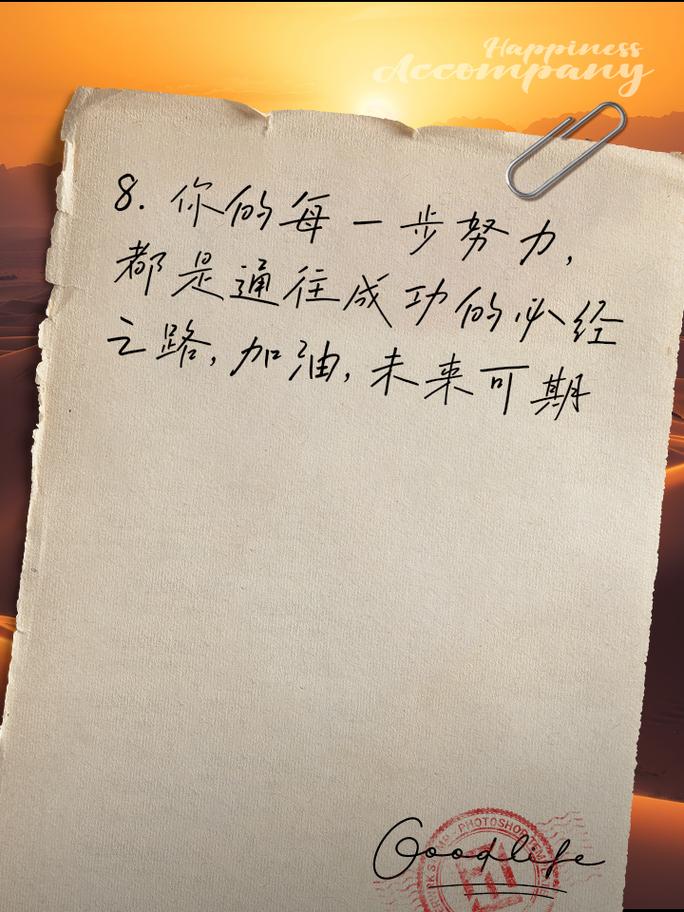 Happiness
Accompany
8. 你的每一步努力,
都是通往成功的必经
之路, 加油, 未来可期
PHOTOSHOP
Goodlife